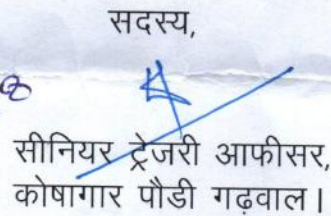 सदस्य,
सीनियर ट्रेजरी आफीसर,
कोषागार पौडी गढवाल।